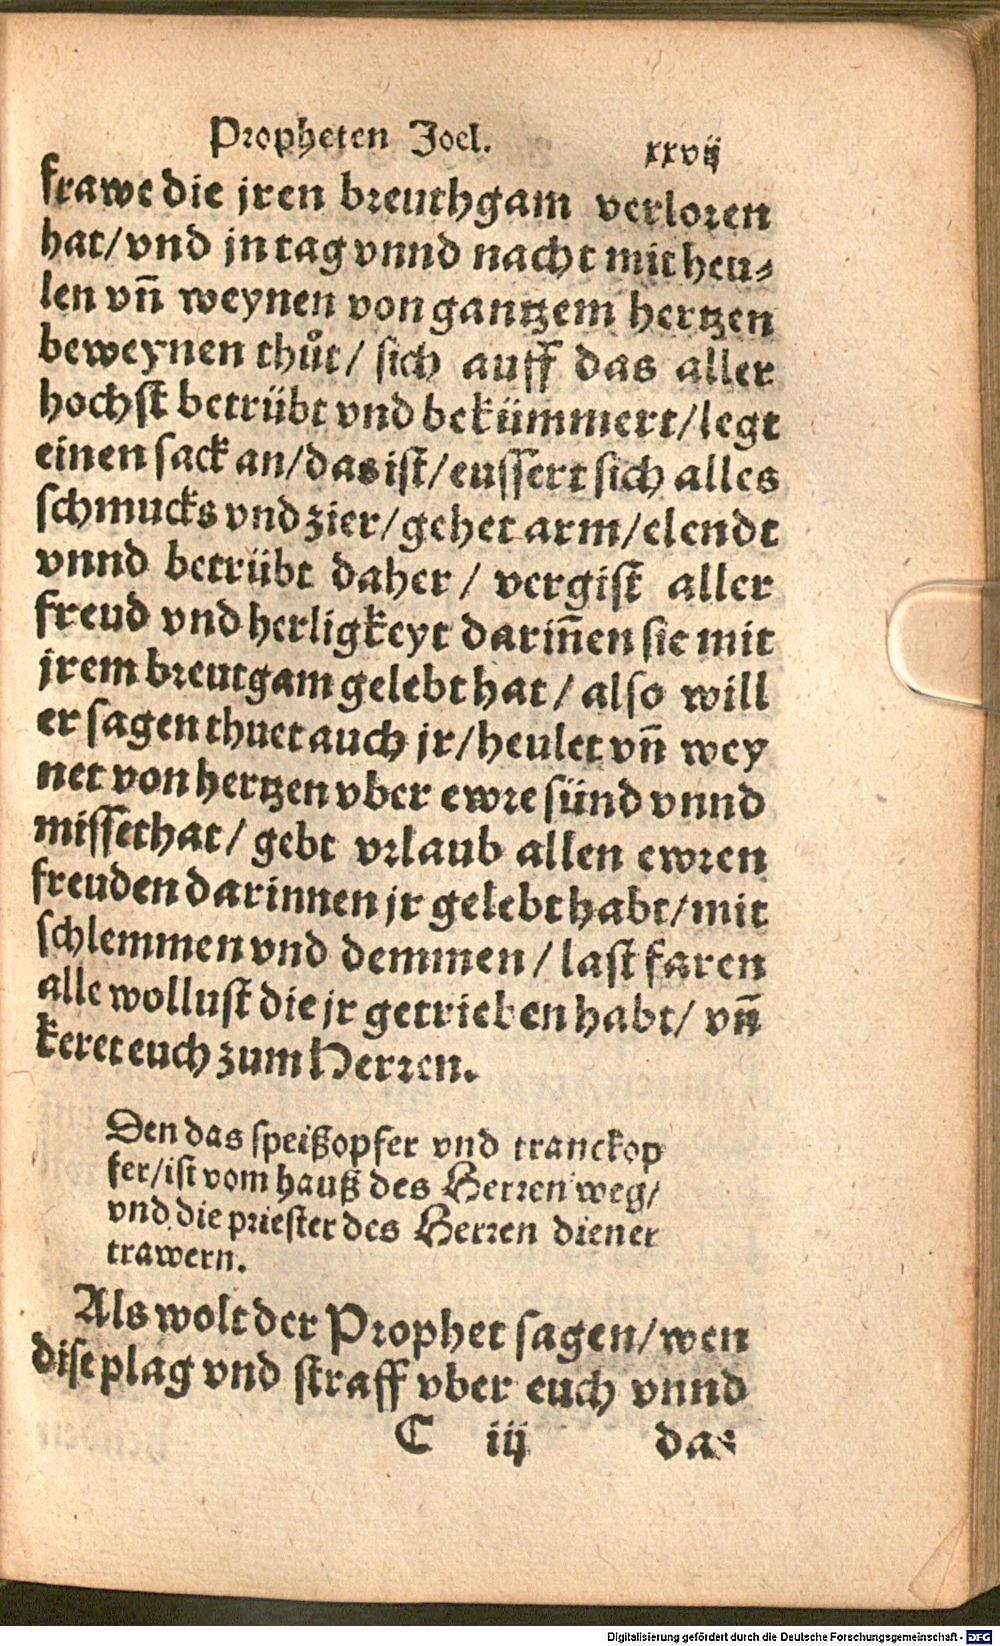 Propheten Joel. xxvij
frawe die jren breuthgam verloren
hat/vnd jn tag vnnd nacht mit heu⸗
len vn̄ weynen von gantzem hertzen
beweynen thůt/ sich auff das aller
hochst betrübt vnd bekümmert/legt
einen sack an/das ist/eussert sich alles
schmucks vnd zier/gehet arm/elendt
vnnd betrübt daher/ vergist aller
freud vnd herligkeyt darin̄en sie mit
jrem breutgam gelebt hat/ also will
er sagen thuet auch jr/heulet vn̄ wey
net von hertzen vber ewre sünd vnnd
missethat/ gebt vrlaub allen ewren
freuden darinnen jr gelebt habt/mit
schlemmen vnd demmen/ last faren
alle wollust die jr getrieben habt/ vn̄
keret euch zum Herren.
Den das speißopfer vnd tranckop
fer/ist vom hauß des Herren weg/
vnd die priester des Herren diener
trawern.
Als wolt der Prophet sagen/wen
dise plag vnd straff vber euch vnnd
C iij das
Digitalisierung gefördert durch die Deutsche Forschungsgemeinschaft - DFG